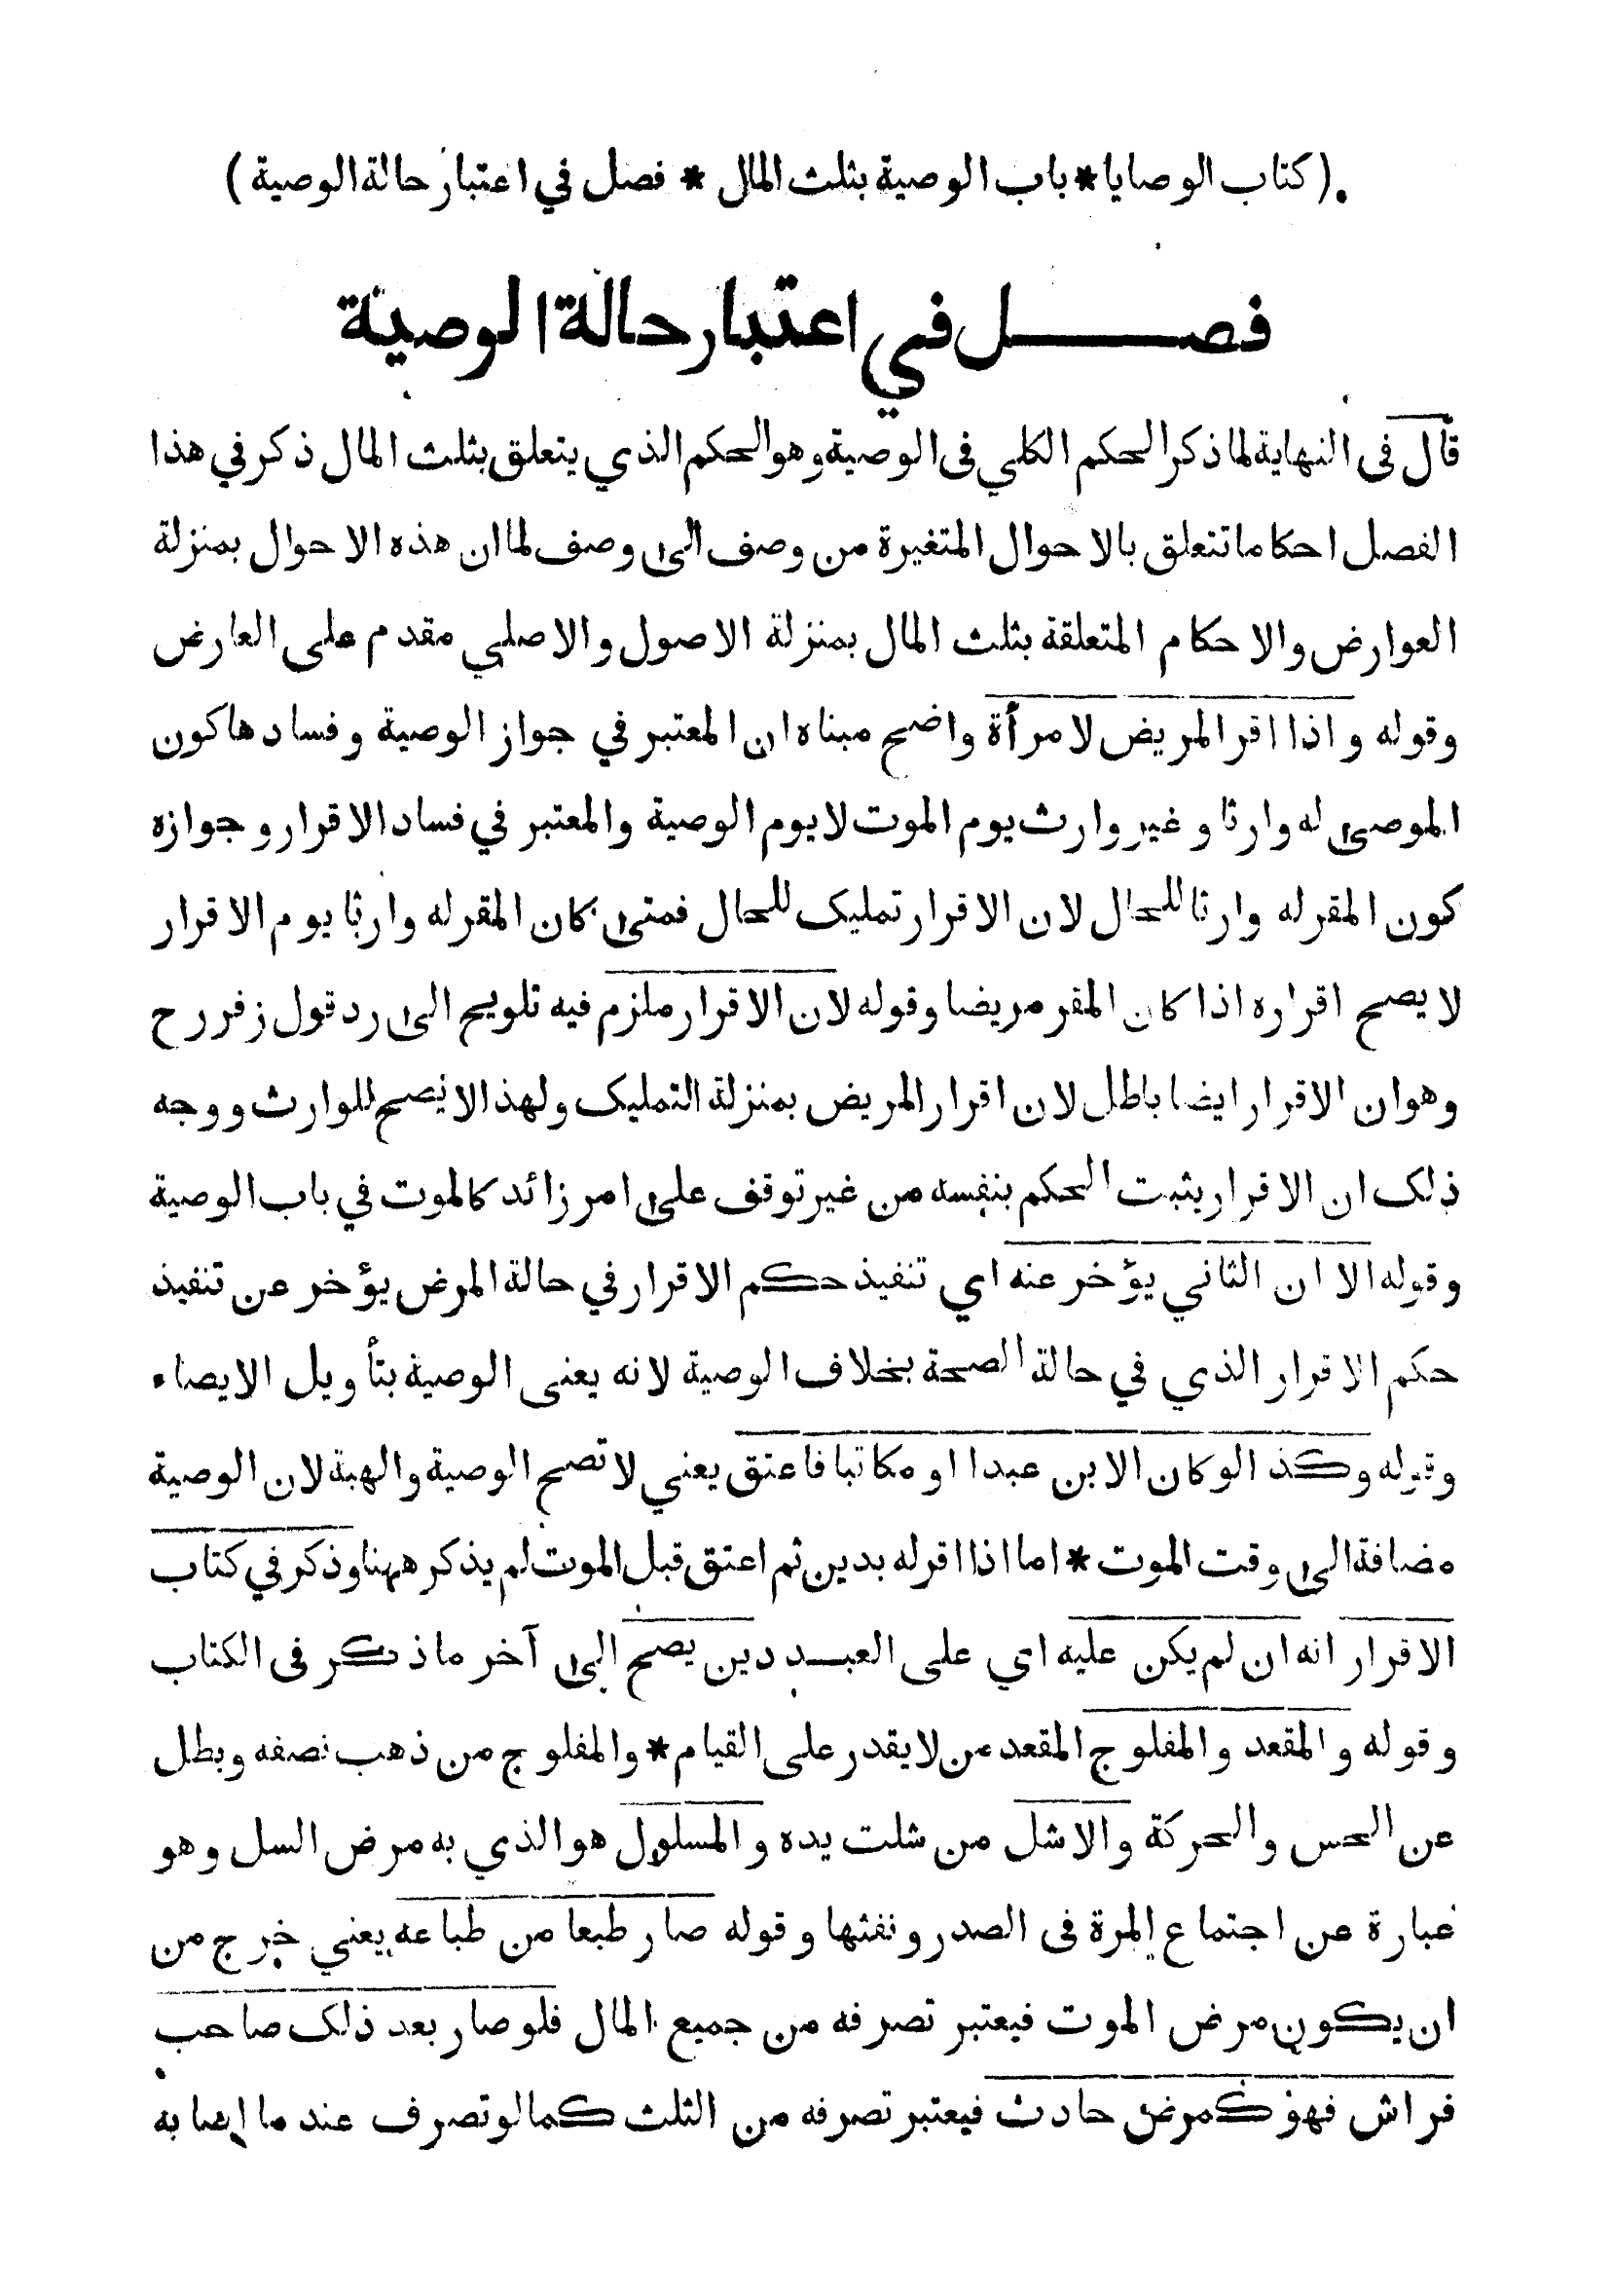 (كتاب الوصايا * باب الوصية بثلث المال * فصل في اعتبار حالة الوصية)
فصل في اعتبار حالة الوصية
قال فى النهاية لما ذكر الحكم الكلي فى الوصية وهو الحكم الذي يتعلق بثلث المال ذكر في هذا
الفصل احكاما تتعلق بالاحوال المتغيرة من وصف الى وصف لما ان هذه الاحوال بمنزلة
العوارض والاحكام المتعلقة بثلث المال بمنزلة الاصول والاصلي مقدم على العارض
وقوله واذا اقر المريض لامرأة واضح مبناه ان المعتبر في جواز الوصية وفسادها كون
الموصى له وارثا وغير وارث يوم الموت لا يوم الوصية والمعتبر في فساد الاقرار وجوازه
كون المقر له وارثا للحال لان الاقرار تمليك للحال فمتى كان المقر له وارثا يوم الاقرار
لا يصح اقراره اذا كان المقر مريضا وقوله لان الاقرار ملزم فيه تلويح الى رد قول زفر رح
وهو ان الاقرار ايضا باطل لان اقرار المريض بمنزلة التمليك ولهذا لا يصح للوارث ووجه
ذلك ان الاقرار يثبت الحكم بنفسه من غير توقف على امر زائد كالموت في باب الوصية
وقوله الا ان الثاني يؤخر عنه اي تنفيذ حكم الاقرار في حالة المرض يؤخر عن تنفيذ
حكم الاقرار الذي في حالة الصحة بخلاف الوصية لانه يعنى الوصية بتأويل الايصاء
وقوله وكذا لو كان الابن عبدا او مكاتبا فاعتق يعني لا تصح الوصية والهبة لان الوصية
مضافة الى وقت الموت * اما اذا اقر له بدين ثم اعتق قبل الموت لم يذكر ههنا وذكر في كتاب
الاقرار انه ان لم يكن عليه اي على العبد دين يصح الى آخر ما ذكر فى الكتاب
وقوله والمقعد والمفلوج المقعد من لا يقدر على القيام * والمفلوج من ذهب نصفه وبطل
عن الحس والحركة والاشل من شلت يده والمسلول هو الذي به مرض السل وهو
عبارة عن اجتماع المرة فى الصدر ونفثها وقوله صار طبعا من طباعه يعني خرج من
ان يكون مرض الموت فيعتبر تصرفه من جميع المال فلو صار بعد ذلك صاحب
فراش فهو كمرض حادث فيعتبر تصرفه من الثلث كما لو تصرف عند ما اصابه